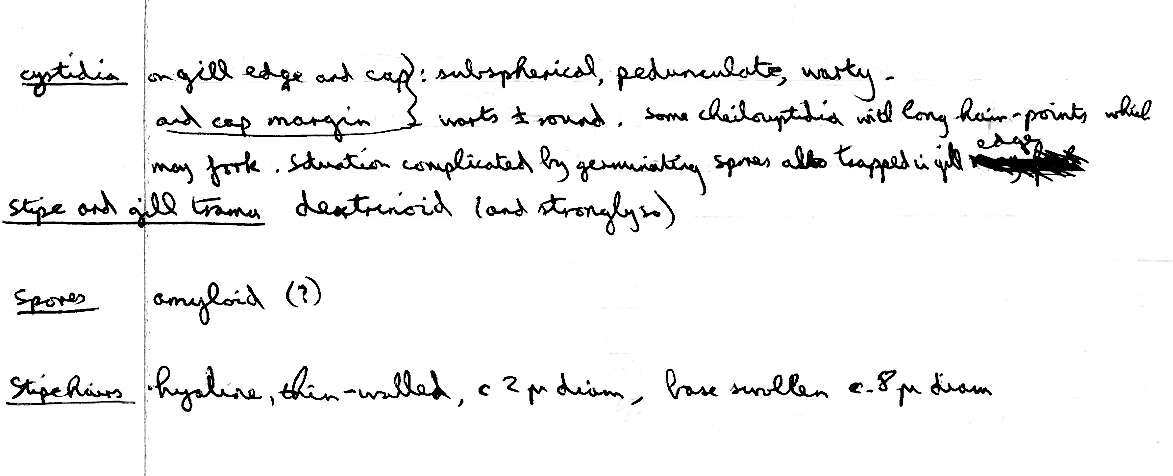 cystidia on gill edge and cap } : subspherical, pedunculate, warty -
and cap margin } warts ± round. Some cheilocystidia with long hair-points which
may fork. Situation complicated by germinating spores also trapped in gill edge
Stipe and gill trama dextrinoid (and strongly so)
Spores amyloid (?)
Stipe hairs hyaline, thin-walled, c 2 μ diam, base swollen c. 8 μ diam